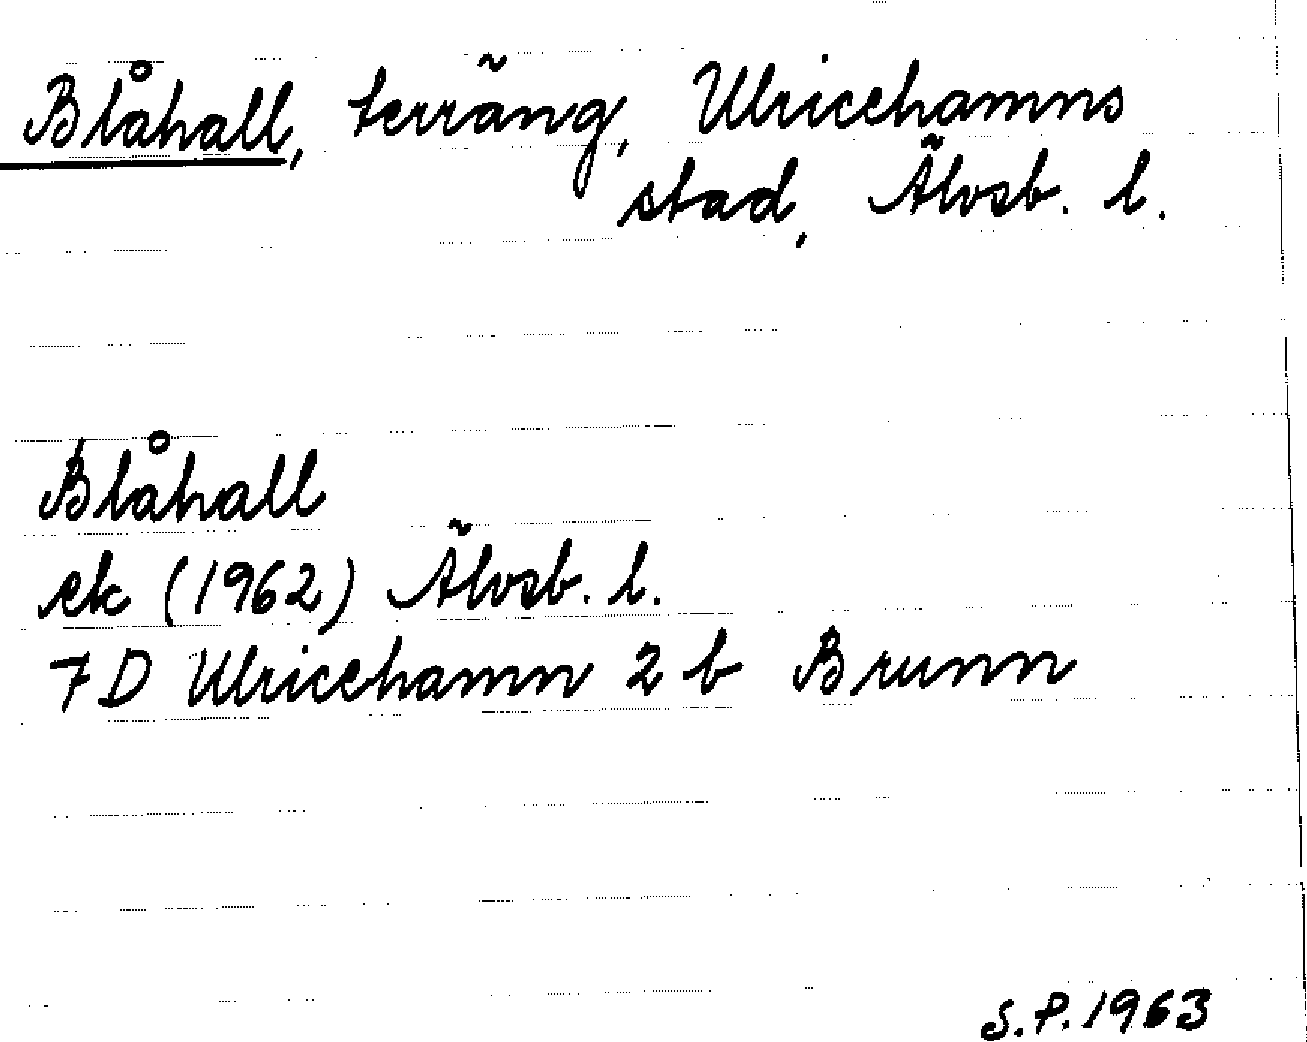 Blåhall, terräng, Ulricehamns
stad, Älvsb. l.
Blåhall
ek (1962) Älvsb. l.
7 D Ulricehamn 2 b Brunn
S.P. 1963